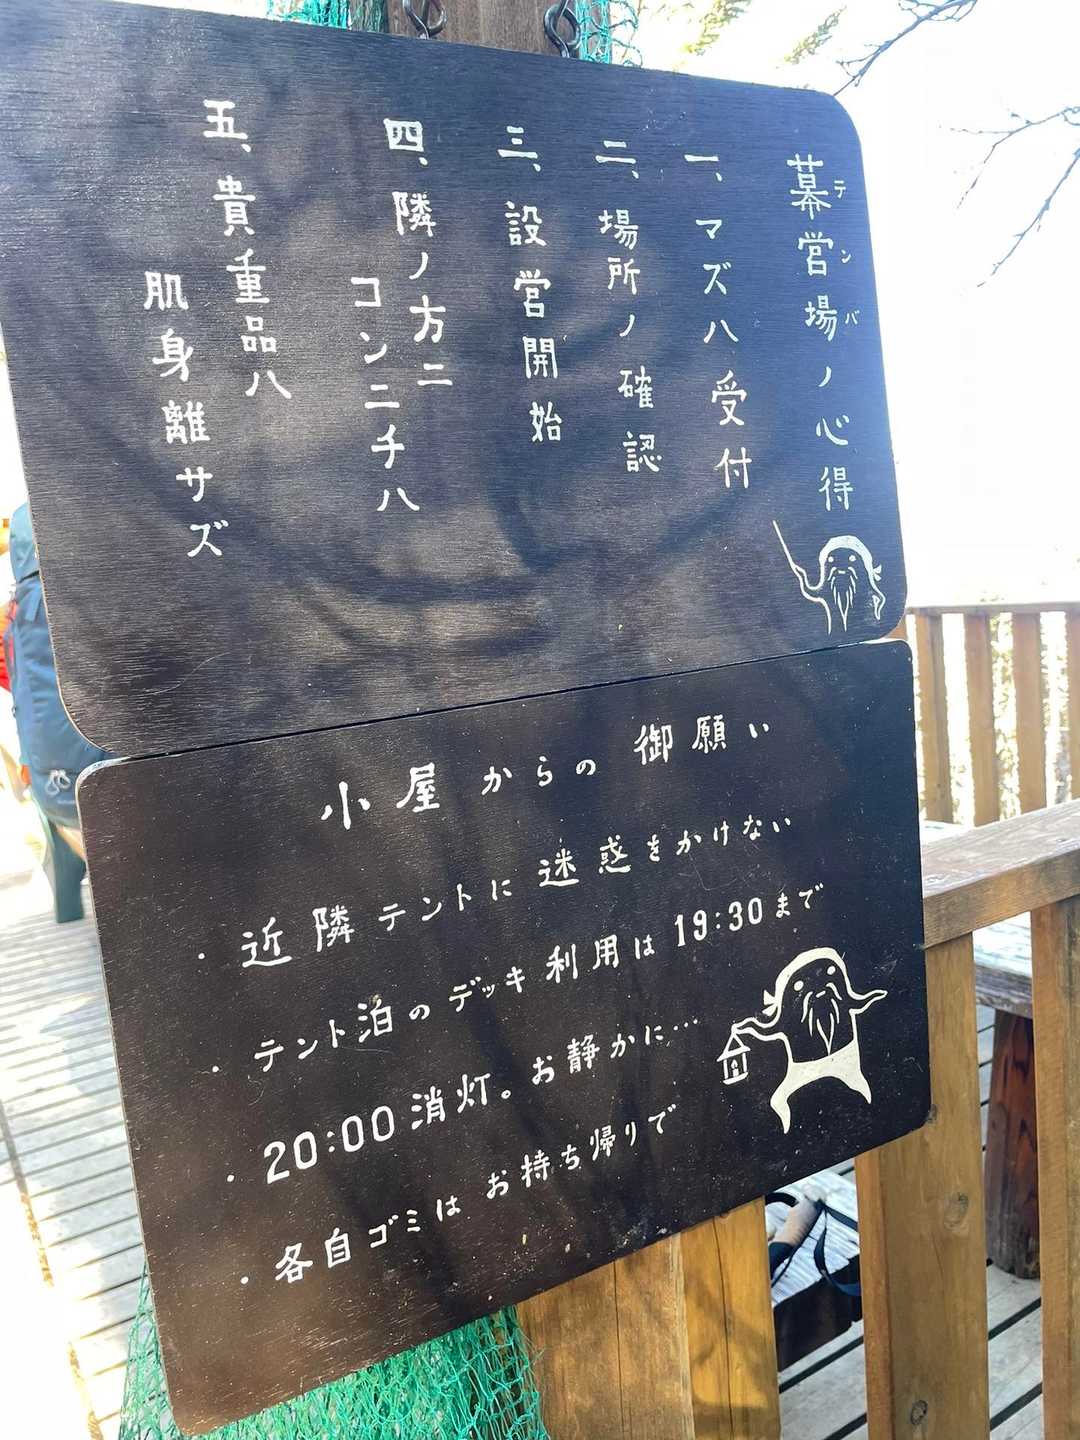 幕営場ノ心得
テンバ
一、マズハ受付
二、場所ノ確認
三、設営開始
四、隣ノ方ニ
コンニチハ
五、貴重品ハ
肌身離サズ
小屋からの御願い
・近隣テントに迷惑をかけない
・テント泊のデッキ利用は19:30まで
・20:00消灯。お静かに…
・各自ゴミはお持ち帰りで